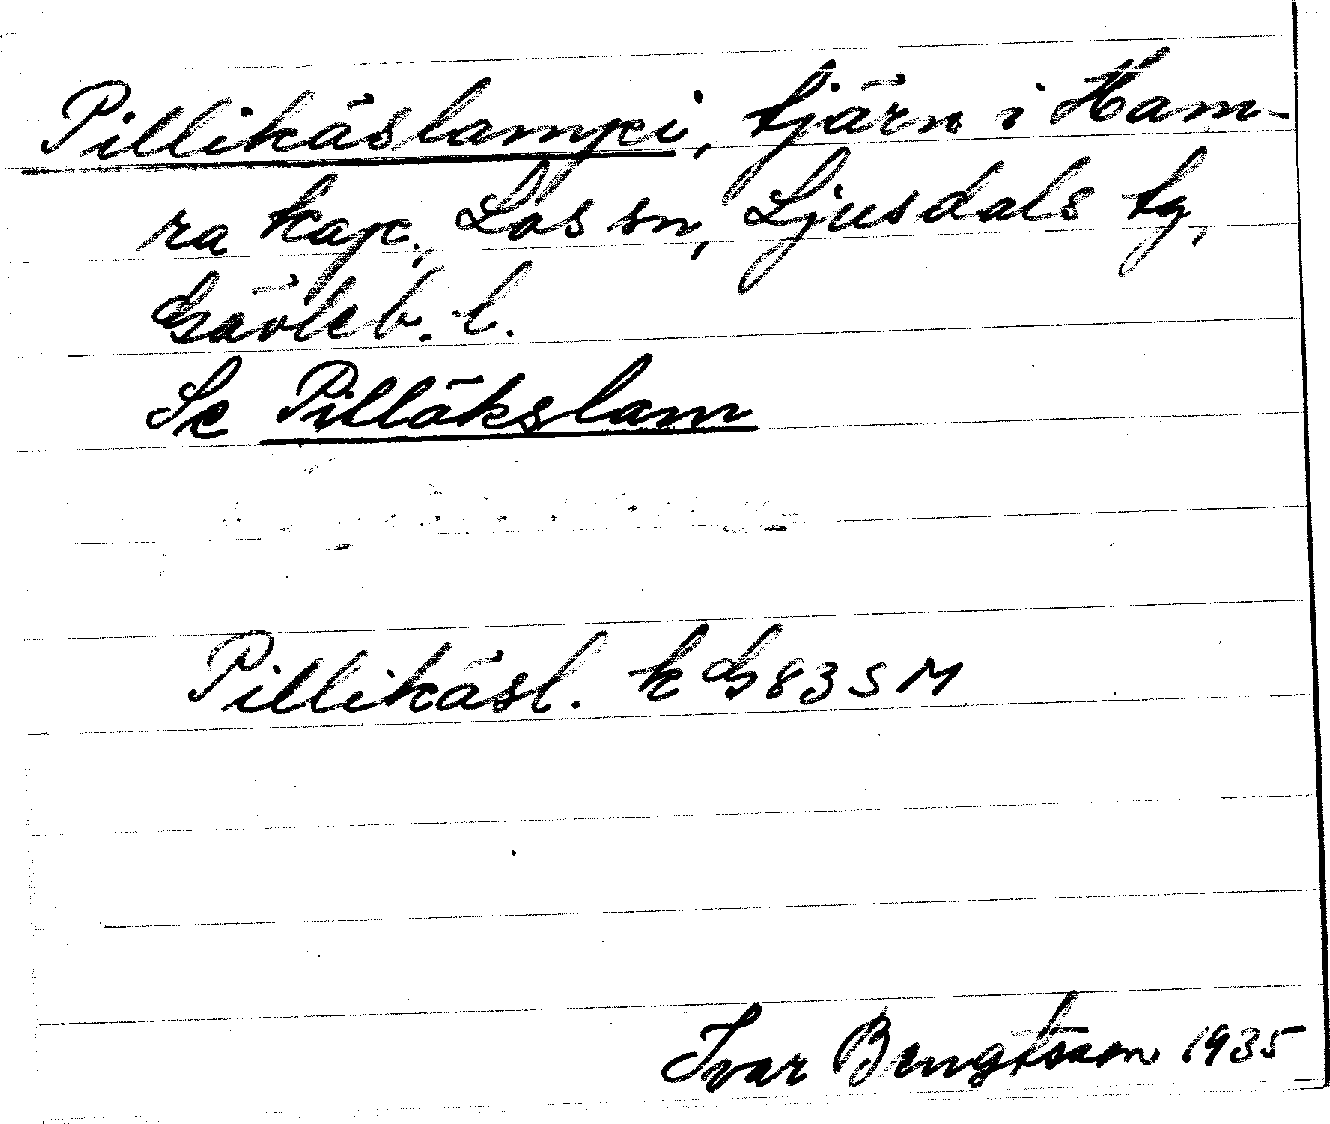 Pillikäslampi, tjärn i Ham-
ra kap., Los sn, Ljusdals tg,
Gävleb. l.
Se Pilläkslam
Pillikäsl. k G 83 S M
Ivar Bengtsson 1935